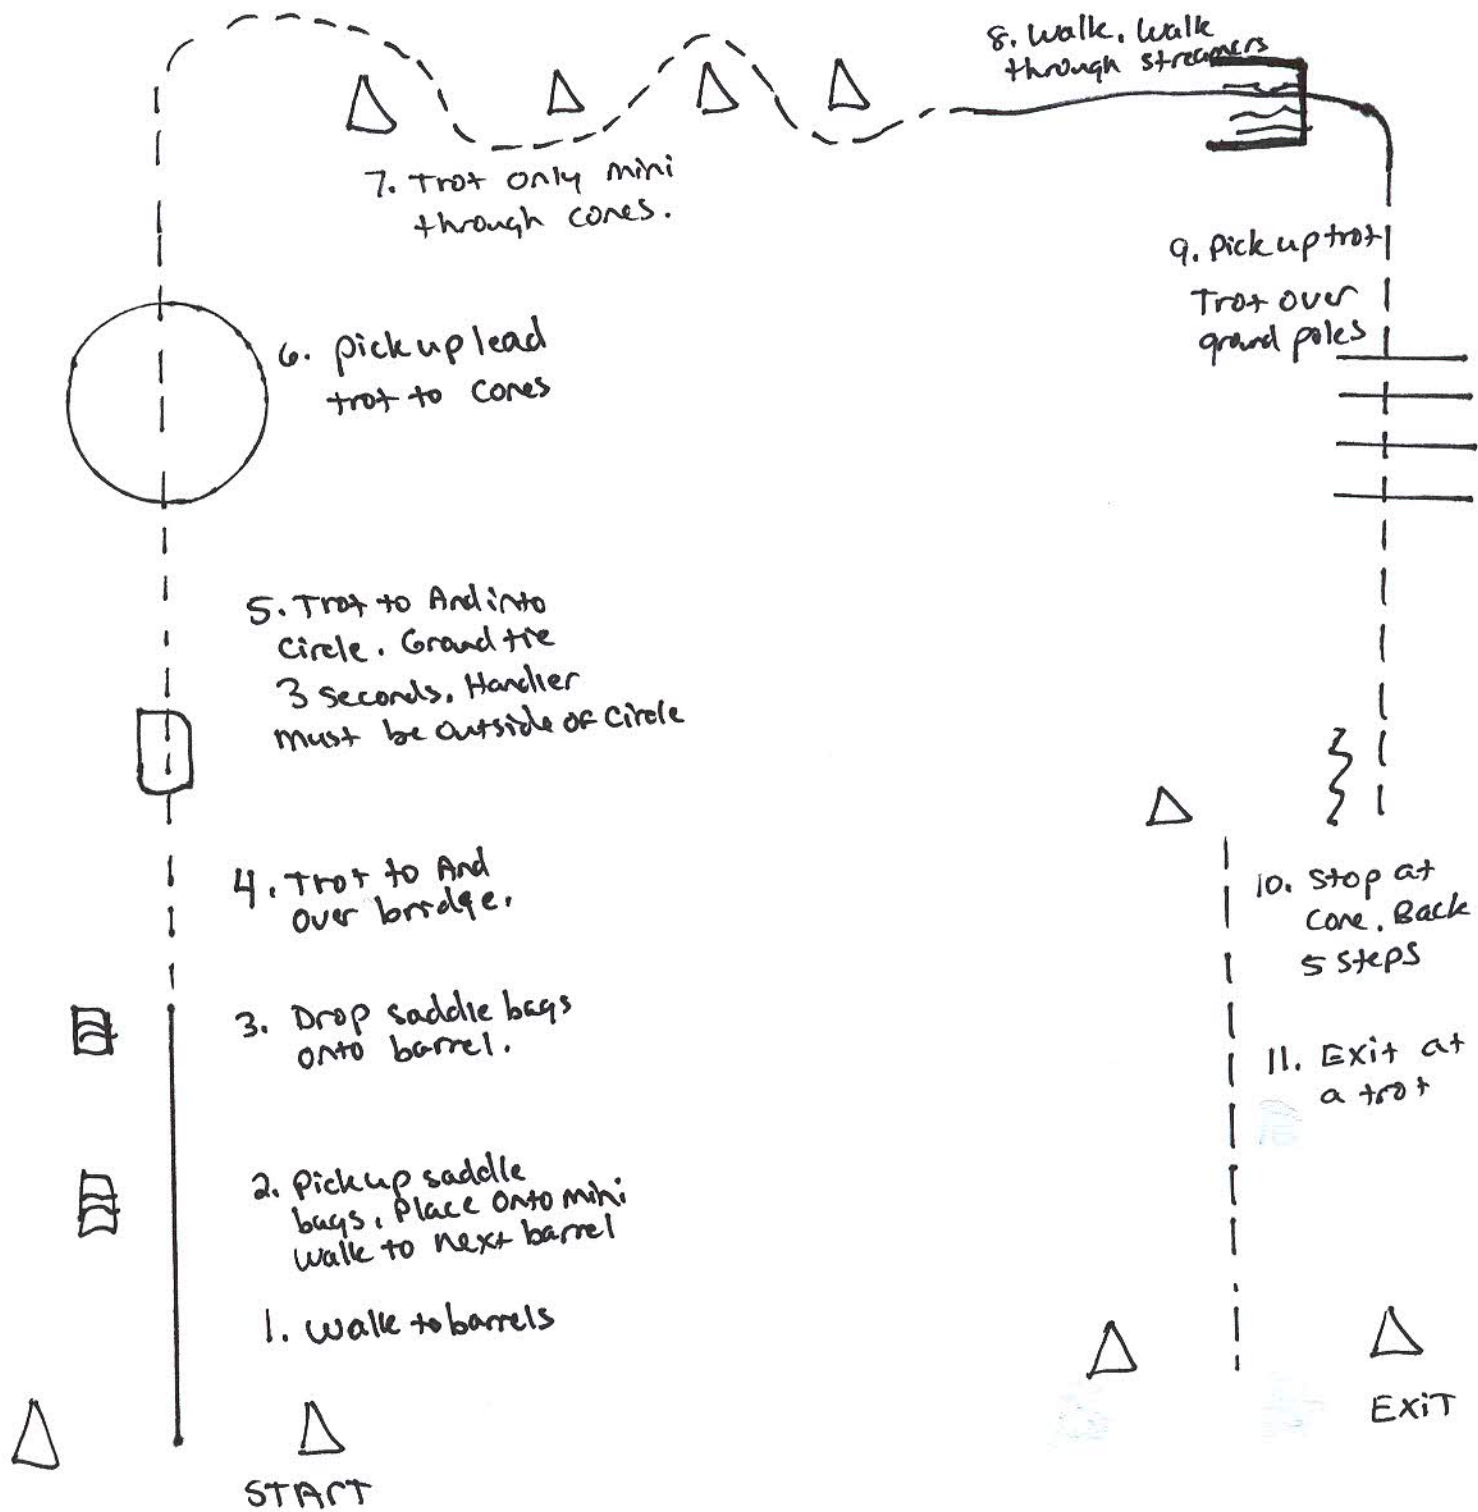 8. Walk. Walk
through streamers
7. Trot only mini
through cones.
9. Pick up trot
Trot over
ground poles
6. Pick up lead
trot to cones
5. Trot to And into
Circle. Ground tie
3 seconds. Handler
must be outside of Circle
4. Trot to And
over bridge.
10. Stop at
Cone. Back
5 steps
3. Drop saddle bags
onto barrel.
11. Exit at
a trot
2. Pick up saddle
bags. Place onto mini
walk to next barrel
1. Walk to barrels
START
EXIT